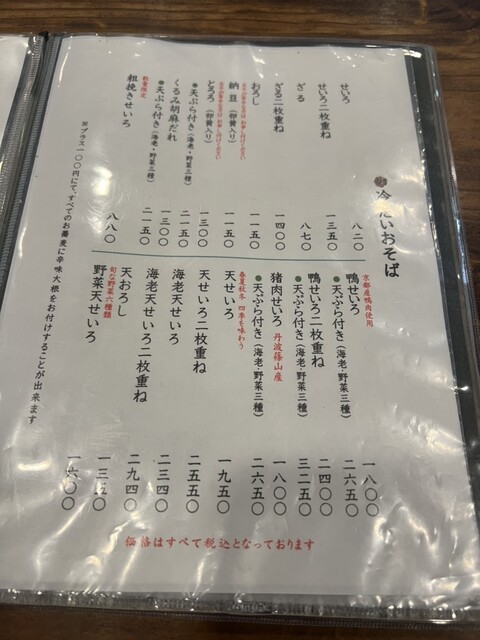 冷たいおそば
せいろ 八二〇
せいろ二枚重ね 一三五〇
ざる 八七〇
ざる二枚重ね 一四〇〇
おろし 一一五〇
納豆(卵黄入り) 一一五〇
とろろ(卵黄入り) 一三〇〇
●天ぷら付き(海老・野菜三種) 二一五〇
くるみ胡麻だれ 一三〇〇
●天ぷら付き(海老・野菜三種) 二一五〇
数量限定
粗挽きせいろ 八八〇
京都産鴨肉使用
鴨せいろ 一八〇〇
●天ぷら付き(海老・野菜三種) 二六五〇
鴨せいろ二枚重ね 二四〇〇
●天ぷら付き(海老・野菜三種) 三二五〇
猪肉せいろ 丹波篠山産 一八〇〇
●天ぷら付き(海老・野菜三種) 二六五〇
春夏秋冬 四季を味わう
天せいろ 一九五〇
天せいろ二枚重ね 二五五〇
海老天せいろ 二三四〇
海老天せいろ二枚重ね 二九四〇
天おろし 一三五〇
旬な野菜六種類
野菜天せいろ 一六〇〇
※プラス一〇〇円にて、すべてのお蕎麦に辛味大根をお付けすることが出来ます
価格はすべて税込となっております